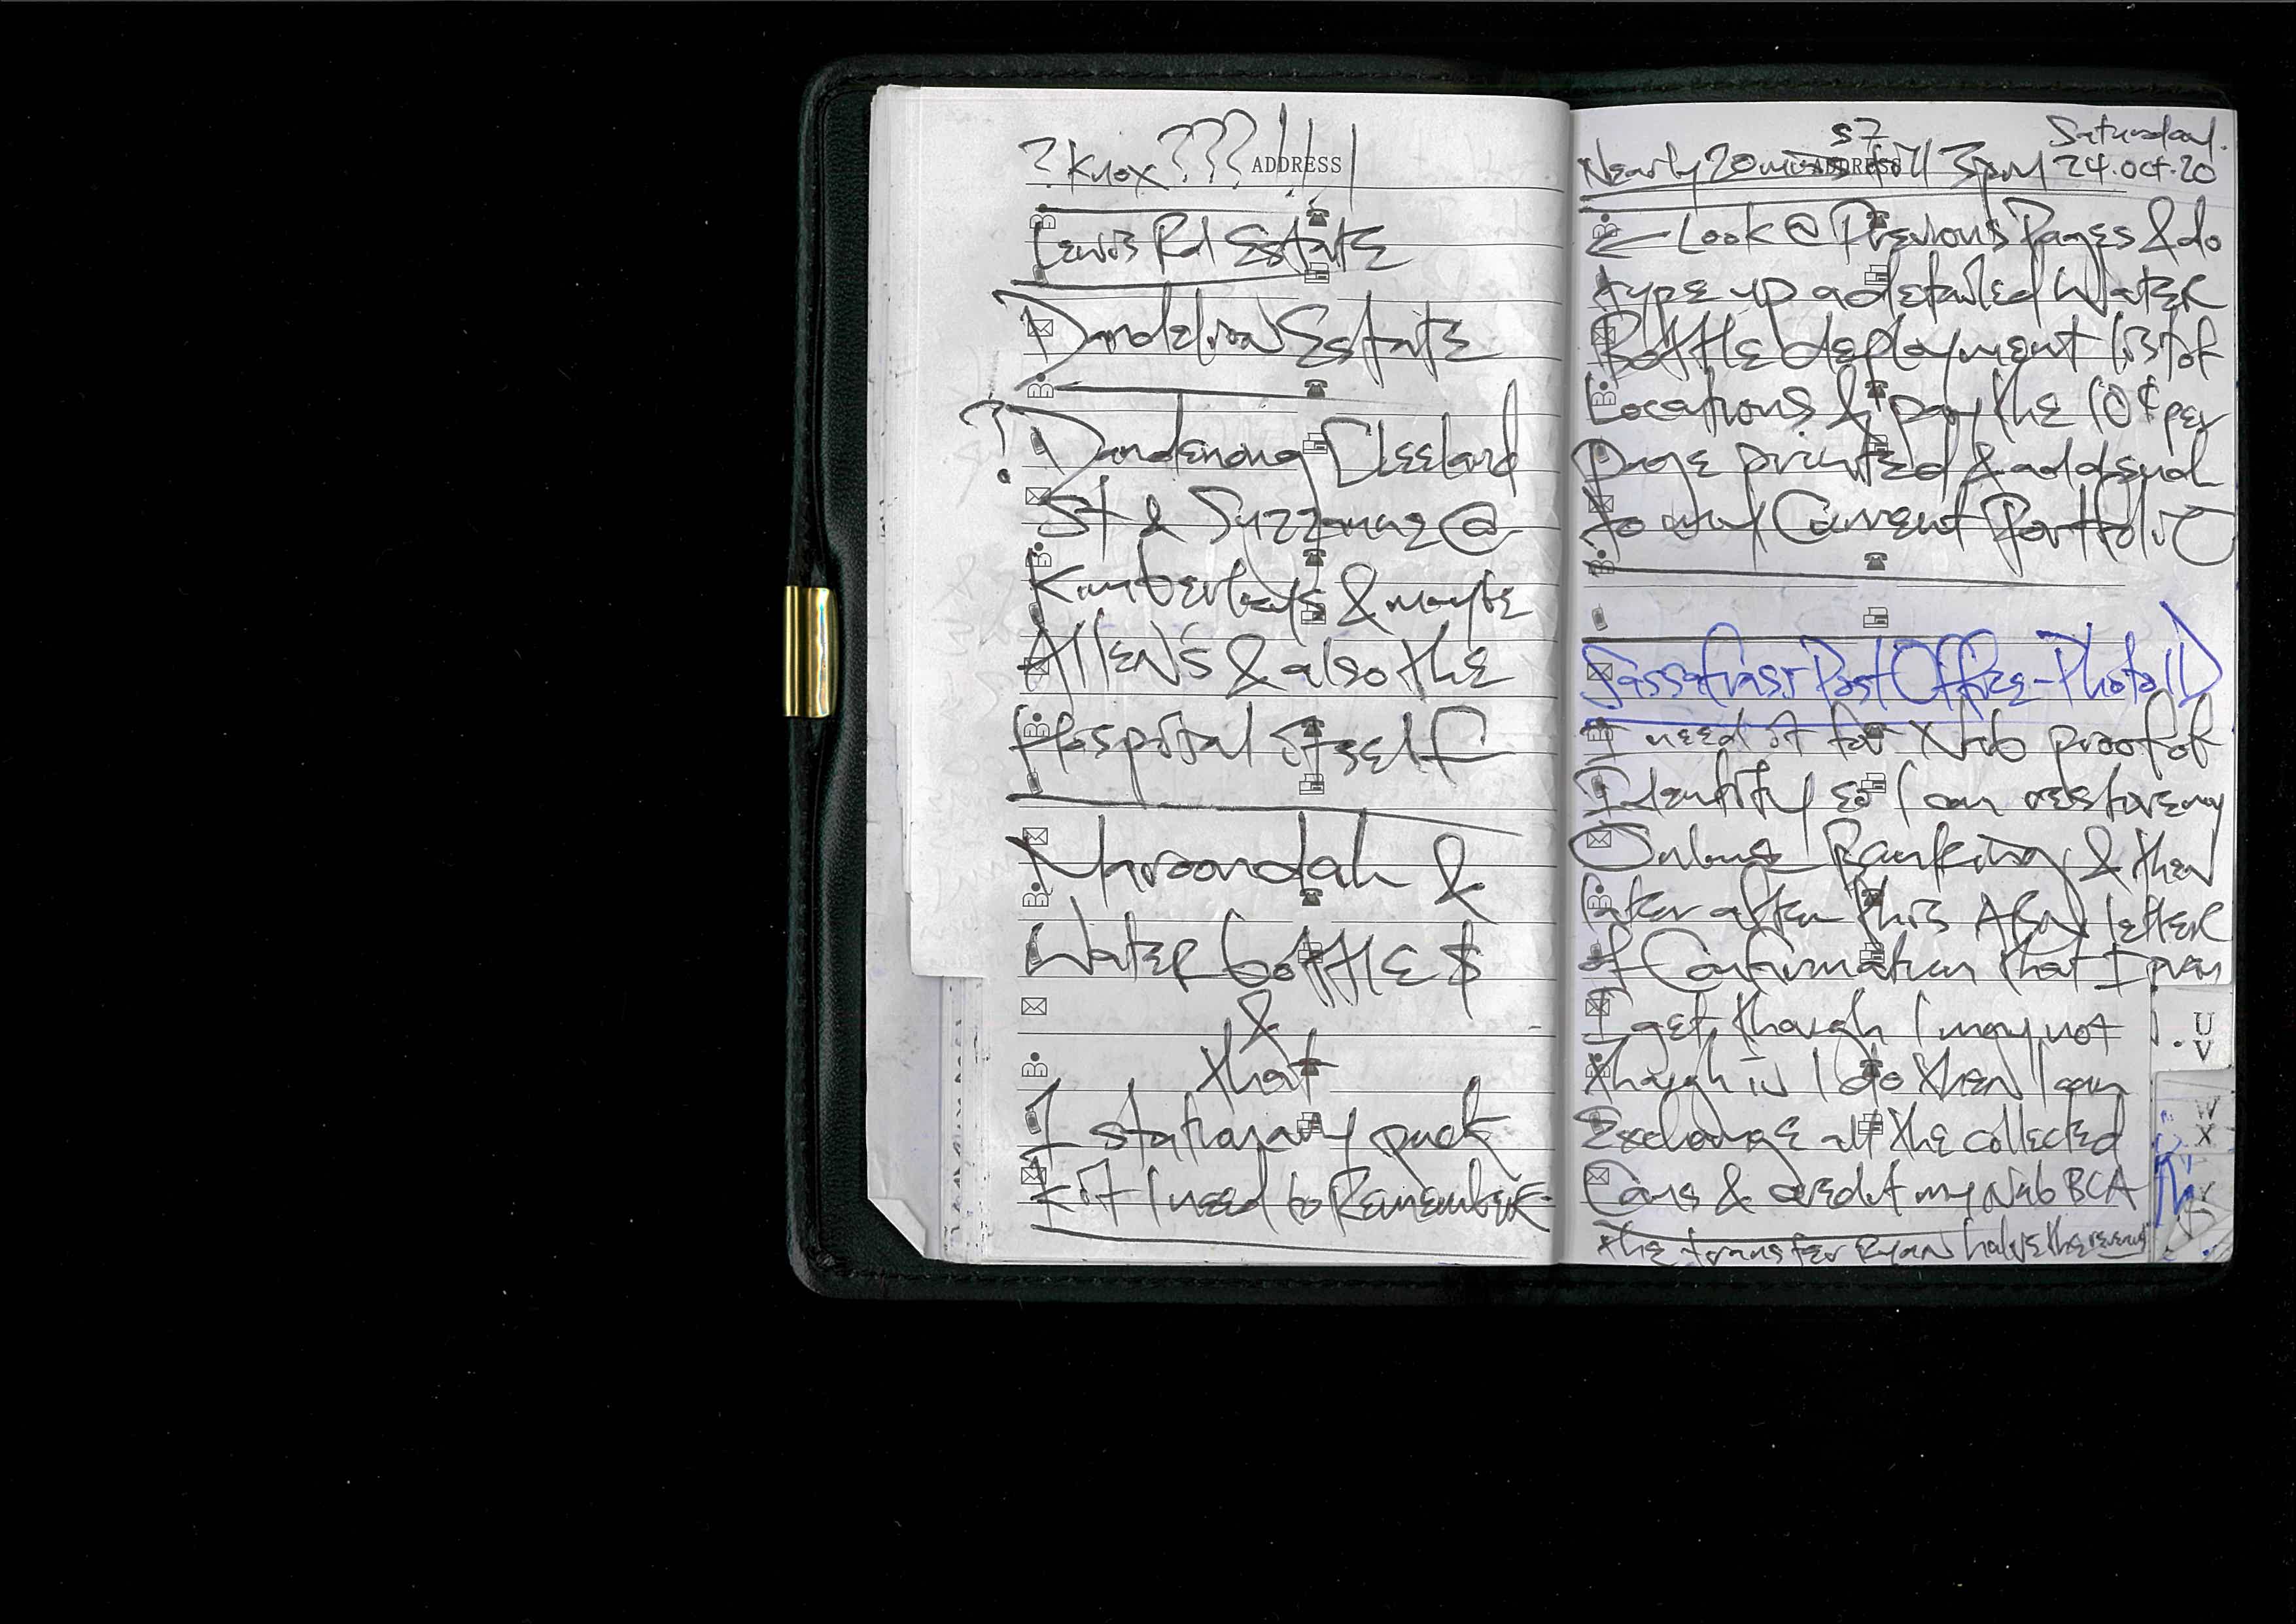 ? Knox ??? !!!
ADDRESS
Lewis Rd Estate
Dandelion Estate
? Dandenong Cleeland
St & Suzzanne @
Kimberley's & maybe
Allen's & also the
Hospital itself
Maroondah &
Water bottle $
&
that
I stationary pack
Kit I need to Remember
S7 Saturday.
Nearly 20 mins till 3pm 24.oct.20
ADDRESS
← Look @ Previous Pages & do
type up a detailed Water
Bottle deployment list of
Locations & pay the 10¢ per
Page printed & add such
to my Current Portfolio
Sassafrass Post Office - Photo ID
I need it for Nab proof of
Identity so I can restore my
Online Banking & then
later after this ABN letter
of Confirmation that I pray
I get, though I may not
though if I do then I can
Exchange all the collected
Cans & credit my Nab BCA
the transfer Ryan halve the revenue
U
V
W
X
Y